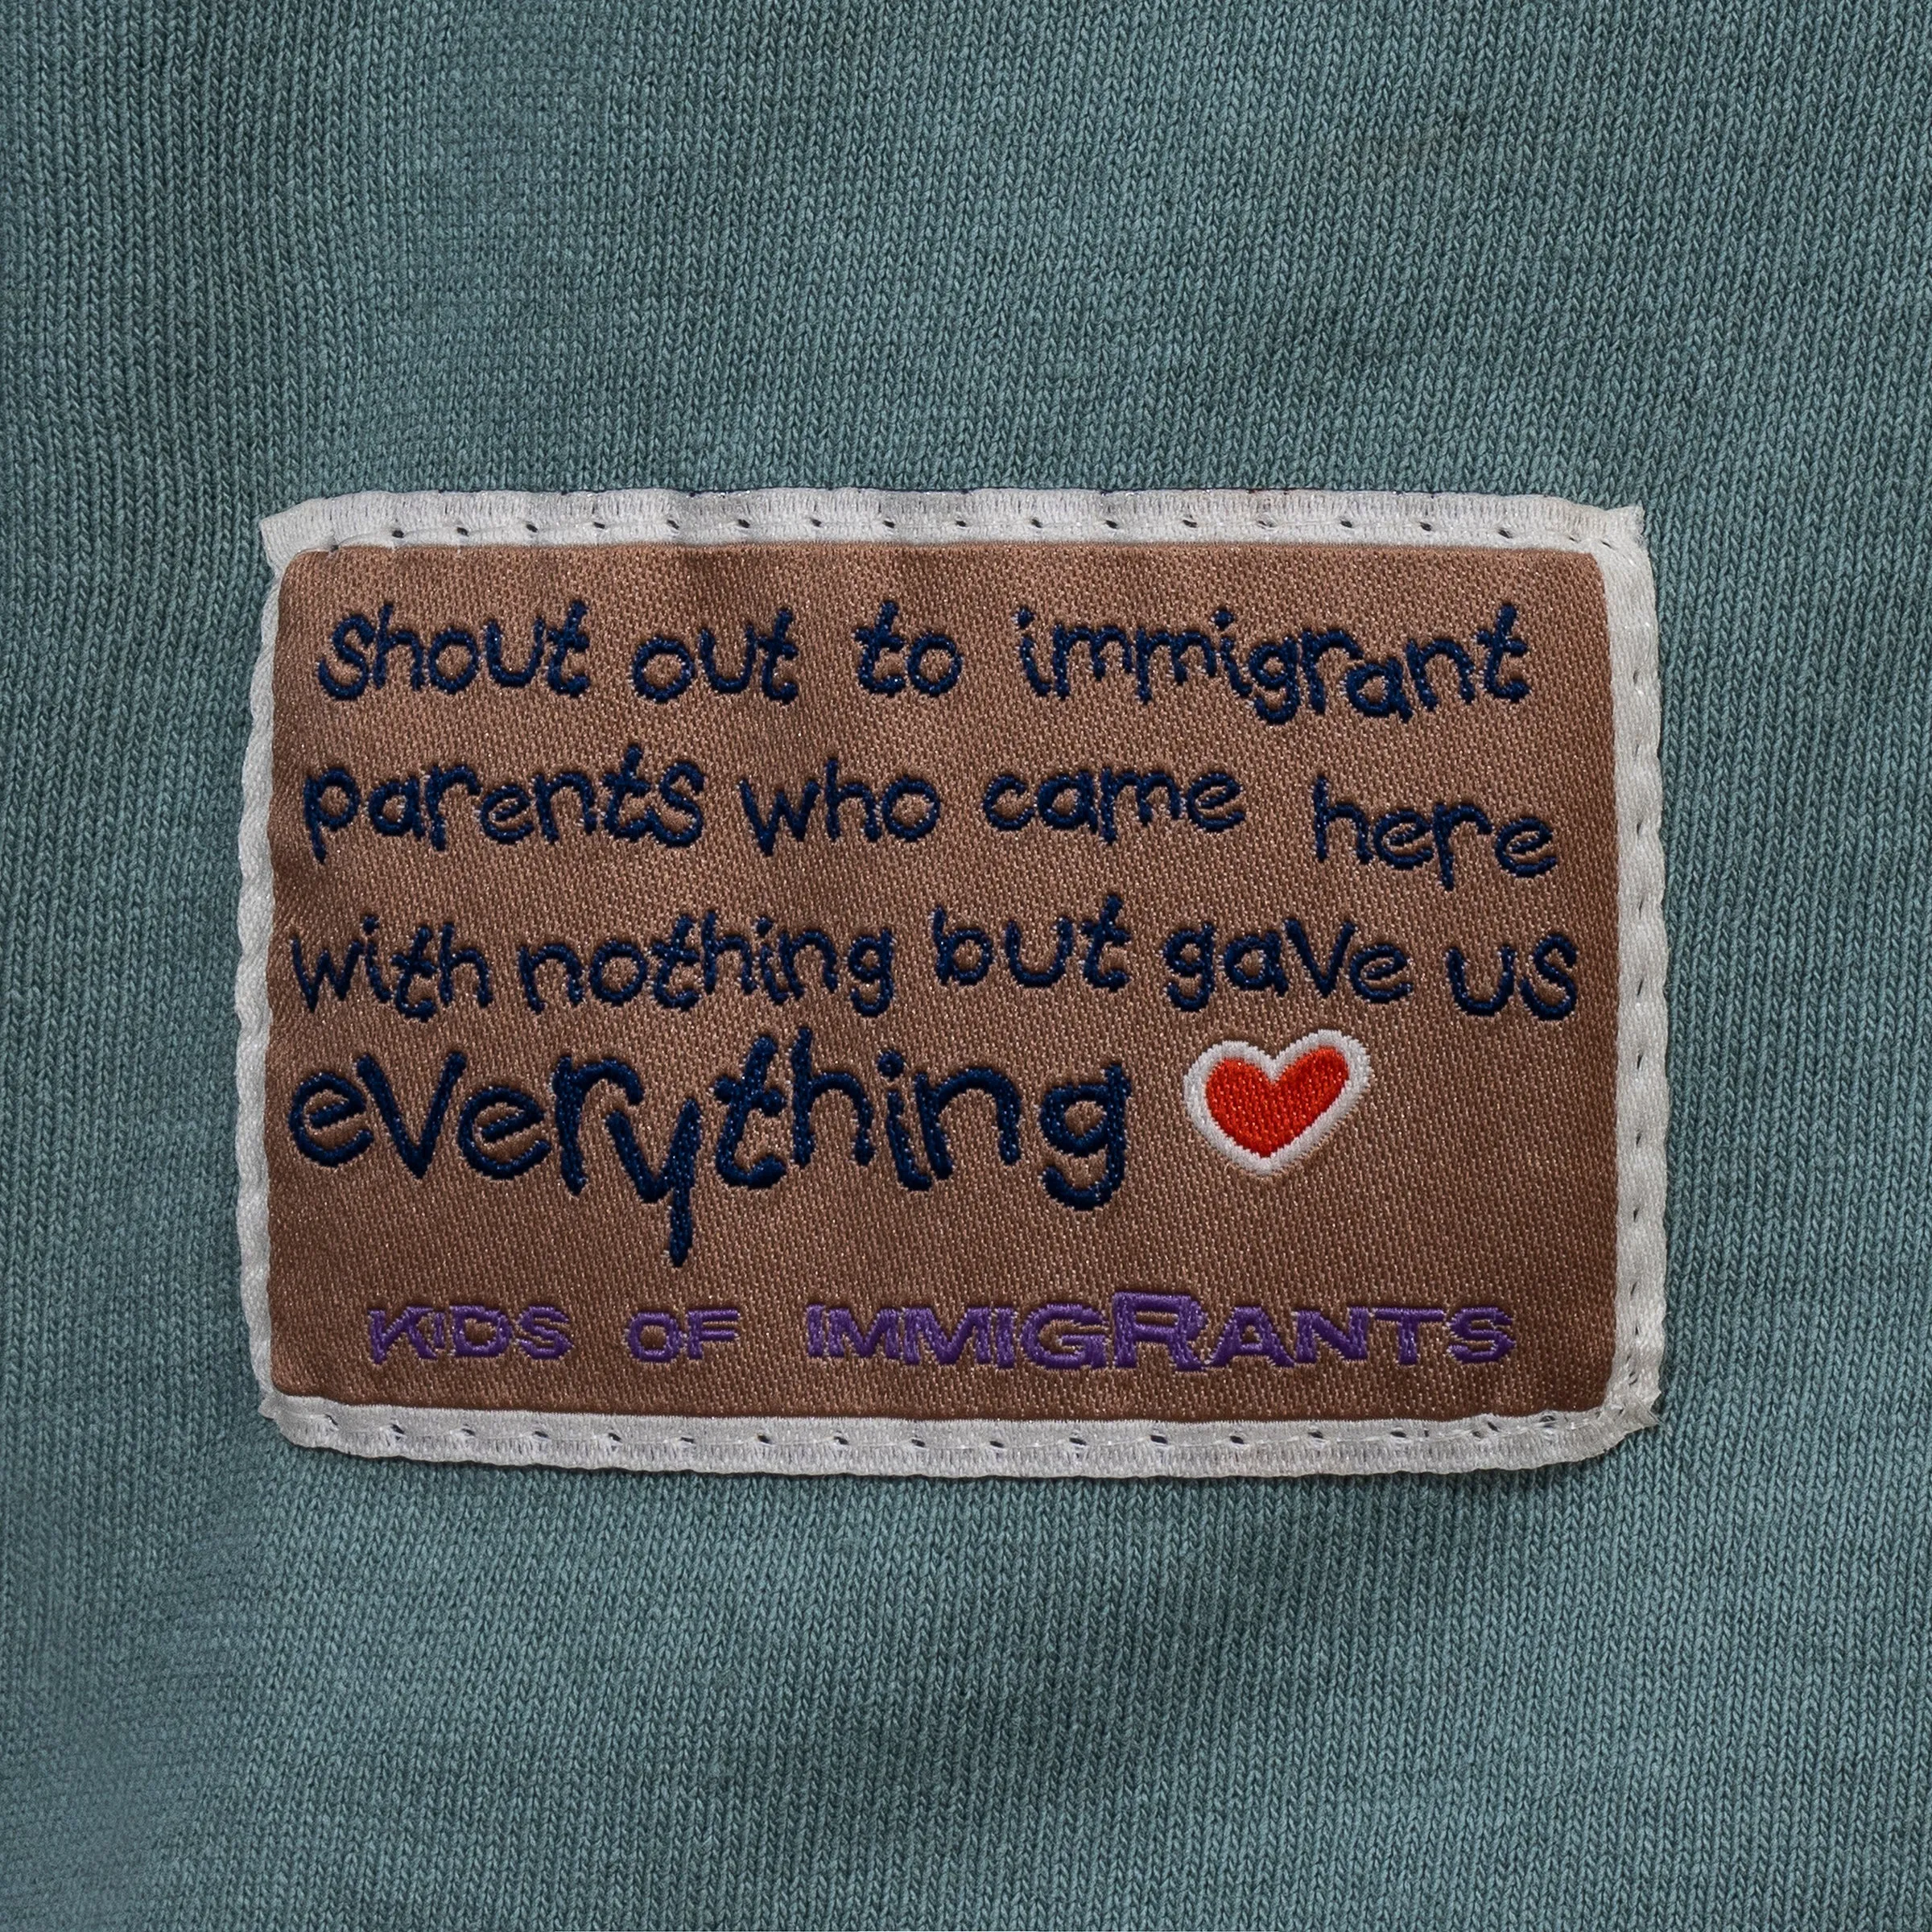 shout out to immigrant
parents who came here
with nothing but gave us
everything
KIDS OF IMMIGRANTS